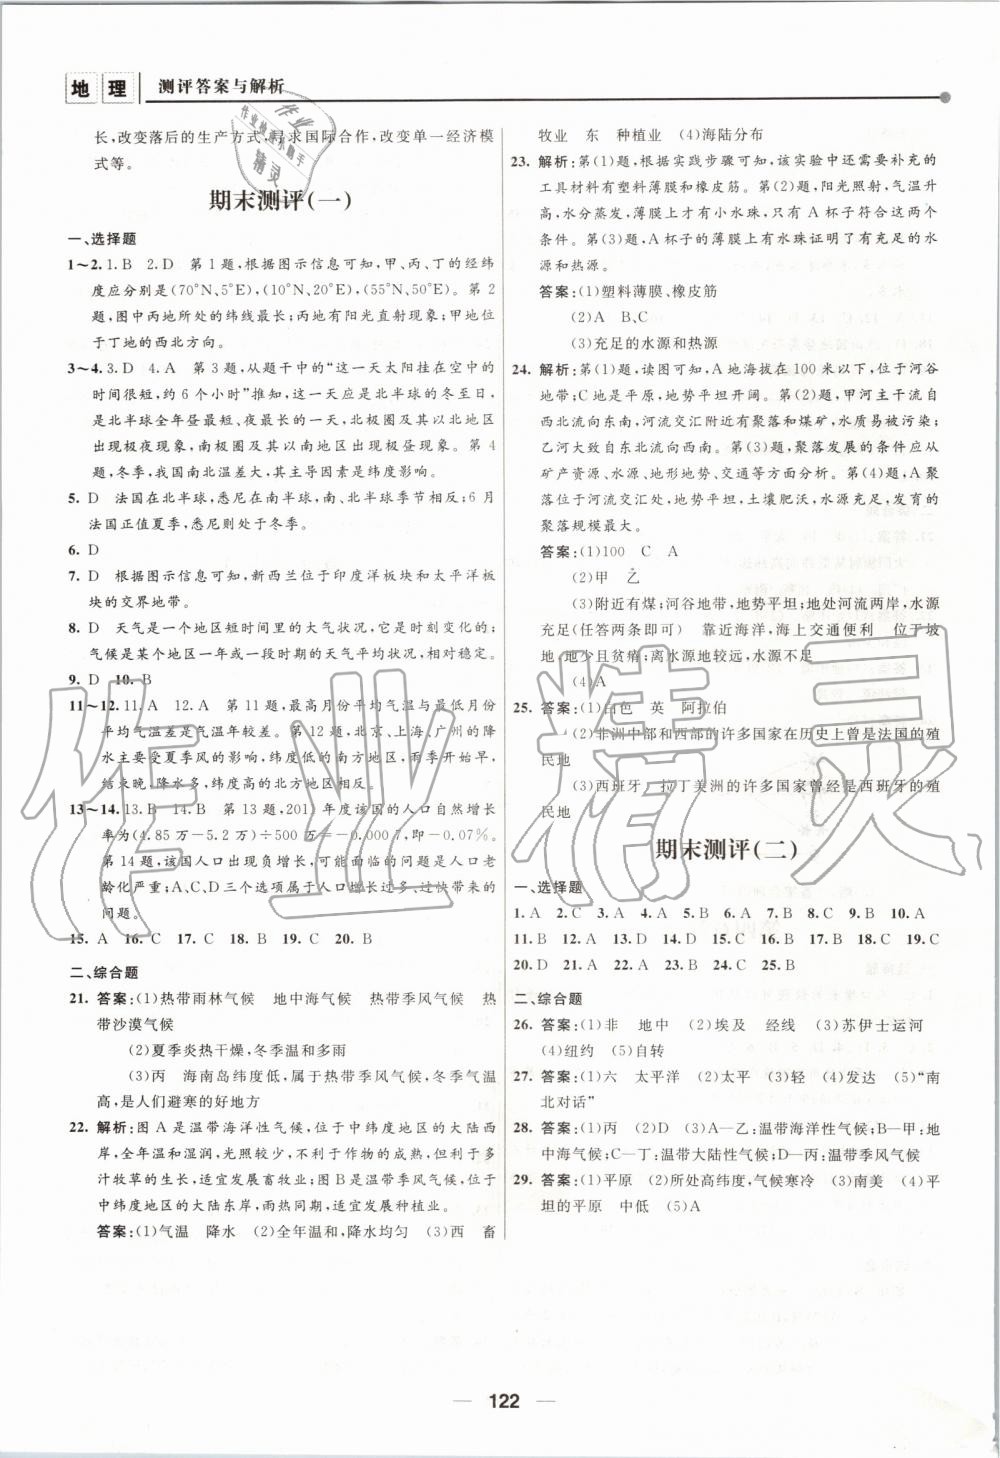 地 理 测评答案与解析
长,改变落后的生产方式,寻求国际合作,改变单一经济模
式等。
期末测评(一)
一、选择题
1～2.1.B 2.D 第1题,根据图示信息可知,甲、丙、丁的经纬
度应分别是(70°N,5°E),(10°N,20°E),(55°N,50°E)。第2
题,图中丙地所处的纬线最长;丙地有阳光直射现象;甲地位
于丁地的西北方向。
3～4.3.D 4.A 第3题,从题干中的“这一天太阳挂在空中的
时间很短,约6个小时”推知,这一天应是北半球的冬至日,
是北半球全年昼最短、夜最长的一天,北极圈及其以北地区
出现极夜现象,南极圈及其以南地区出现极昼现象。第4
题,冬季,我国南北温差大,其主导因素是纬度影响。
5. D 法国在北半球,悉尼在南半球,南北半球季节相反;6月
法国正值夏季,悉尼则处于冬季。
6. D
7. D 根据图示信息可知,新西兰位于印度洋板块和太平洋板
块的交界地带。
8. D 天气是一个地区短时间里的大气状况,它是时刻变化的;
气候是某个地区一年或一段时期的天气平均状况,相对稳定。
9. D 10. B
11～12.11.A 12.A 第11题,最高月份平均气温与最低月份
平均气温差是气温年较差。第12题,北京、上海、广州的降
水主要受夏季风的影响,纬度较低的南方地区,雨季开始早,
结束晚,降水多,纬度高的北方地区相反。
13～14.13.B 14.B 第13题,2011年度该国的人口自然增长
率为(4.85万－5.2万)÷500万＝－0.000 7,即－0.07%。
第14题,该国人口出现负增长,可能面临的问题是人口老
龄化严重;A、C、D三个选项属于人口增长过多、过快带来的
问题。
15. A 16. C 17. C 18. B 19. C 20. B
二、综合题
21. 答案:(1)热带雨林气候 地中海气候 热带季风气候 热
带沙漠气候
(2)夏季炎热干燥,冬季温和多雨
(3)丙 海南岛纬度低,属于热带季风气候,冬季气温
高,是人们避寒的好地方
22. 解析:图A是温带海洋性气候,位于中纬度地区的大陆西
岸,全年温和湿润,光照较少,不利于作物的成熟,但有利于多
汁牧草的生长,适宜发展畜牧业;图B是温带季风气候,位于
中纬度地区的大陆东岸,雨热同期,适宜发展种植业。
答案:(1)气温 降水 (2)全年温和,降水均匀 (3)西 畜
牧业 东 种植业 (4)海陆分布
23. 解析:第(1)题,根据实践步骤可知,该实验中还需要补充的
工具材料有塑料薄膜和橡皮筋。第(2)题,阳光照射,气温升
高,水分蒸发,薄膜上才有小水珠,只有A杯子符合这两个
条件。第(3)题,A杯子的薄膜上有水珠证明了有充足的水
源和热源。
答案:(1)塑料薄膜、橡皮筋
(2)A B、C
(3)充足的水源和热源
24. 解析:第(1)题,读图可知,A地海拔在100米以下,位于河谷
地带;C地是平原,地势平坦开阔。第(2)题,甲河主干流自
西北流向东南,河流交汇附近有聚落和煤矿,水质易被污染;
乙河大致自东北流向西南。第(3)题,聚落发展的条件应从
矿产资源、水源、地形地势、交通等方面分析。第(4)题,A聚
落位于河流交汇处,地势平坦,土壤肥沃,水源充足,发育的
聚落规模最大。
答案:(1)100 C A
(2)甲 乙
(3)附近有煤;河谷地带,地势平坦;地处河流两岸,水源
充足(任答两条即可) 靠近海洋,海上交通便利 位于坡
地,地少且贫瘠;离水源地较远,水源不足
(4)A
25. 答案:(1)白色 英 阿拉伯
(2)非洲中部和西部的许多国家在历史上曾是法国的殖
民地
(3)西班牙 拉丁美洲的许多国家曾经是西班牙的殖
民地
期末测评(二)
一、选择题
1. A 2. C 3. A 4. A 5. B 6. A 7. B 8. C 9. B 10. A
11. B 12. A 13. D 14. D 15. C 16. B 17. B 18. C 19. C
20. D 21. A 22. A 23. A 24. C 25. B
二、综合题
26. 答案:(1)非 地中 (2)埃及 经线 (3)苏伊士运河
(4)纽约 (5)自转
27. 答案:(1)六 太平洋 (2)太平 (3)轻 (4)发达 (5)“南
北对话”
28. 答案:(1)丙 (2)D (3)A—乙:温带海洋性气候;B—甲:地
中海气候;C—丁:温带大陆性气候;D—丙:温带季风气候
29. 答案:(1)平原 (2)所处高纬度,气候寒冷 (3)南美 (4)平
坦的平原 中低 (5)A
122
作业精灵